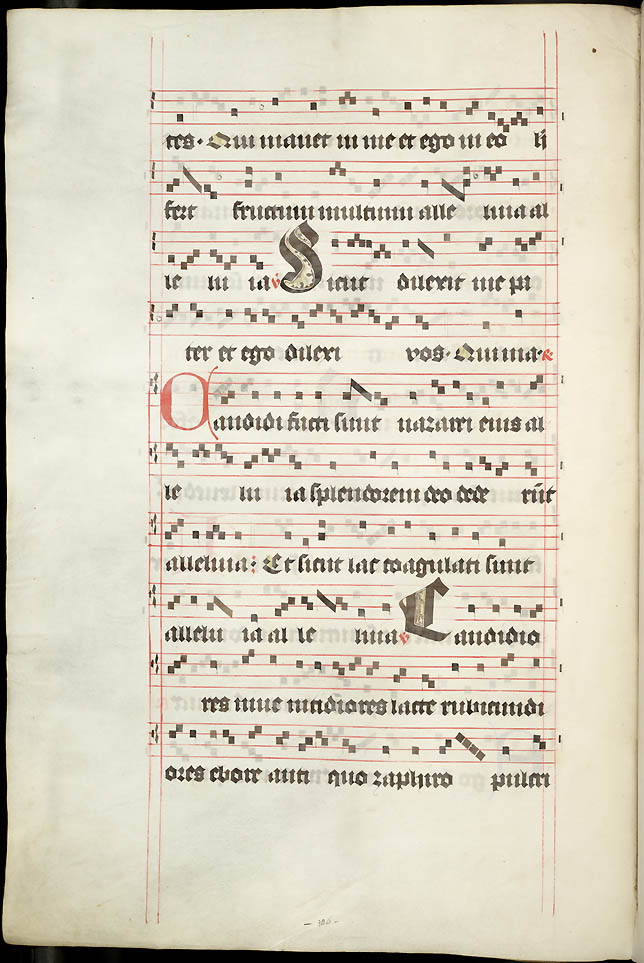 tes · Qui manet in me et ego in eo h̄
fert fructum multum alle luia al
le lu ia v Sicut dilexit me pa
ter et ego dilexi vos · Qui ma R
Candidi facti sunt nazarei eius al
le lu ia splendorem deo dede rūt
alleluia : Et sicut lac coagulati sunt
allelu ia al le luia v Candidio
res niue nitidiores lacte rubicundi
ores ebore anti quo zaphiro pulcri